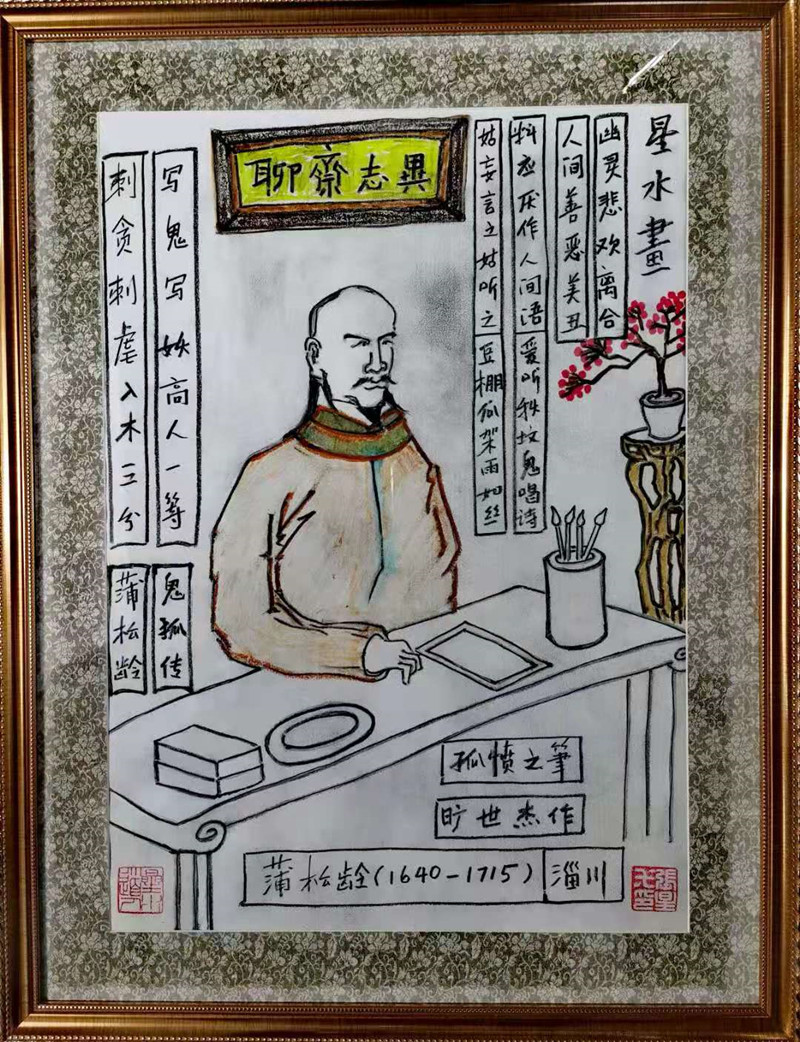 星水畫
幽灵悲欢离合
人间善恶美丑
料应厌作人间语
爱听秋坟鬼唱诗
姑妄言之姑听之
豆棚瓜架雨如丝
聊齋志異
写鬼写妖高人一等
刺贪刺虐入木三分
鬼狐传
蒲松龄
孤愤之筆
旷世杰作
蒲松龄(1640-1715) 淄川